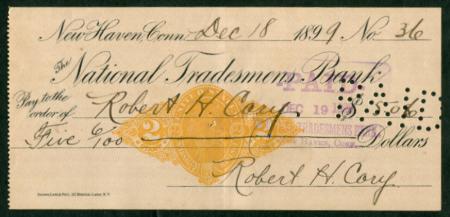 New Haven, Conn. Dec 18 1899 No. 36
The National Tradesmens Bank
Pay to the order of Robert H. Cory $5.06
PAID
DEC 19
TRADESMENS BANK
HAVEN, CONN.
Five 6/00 Dollars
2 2
Robert H. Cory